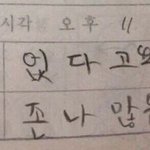 시각 오후 11
없다고
존나 많